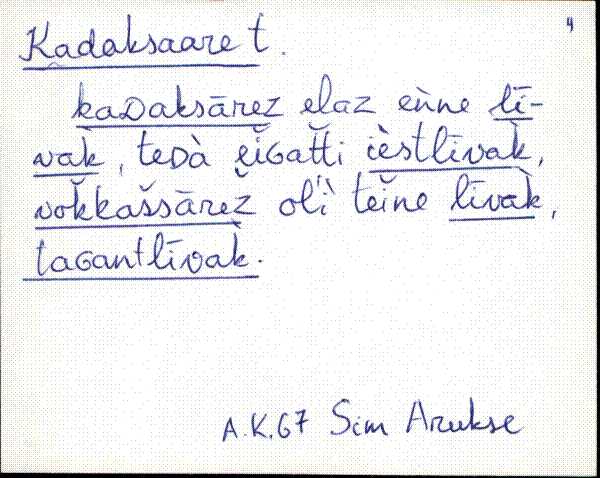 4
Kadaksaare t.
kaᴅaksārez elaz eǹne lī-
vak̀, teᴅà ei̬ɢat̆ti i̬èstlīvak̀,
vok̆kaššārez olˈì teĭne līvak̀,
taɢantlīvak̀.
A.K.67 Sim Arukse